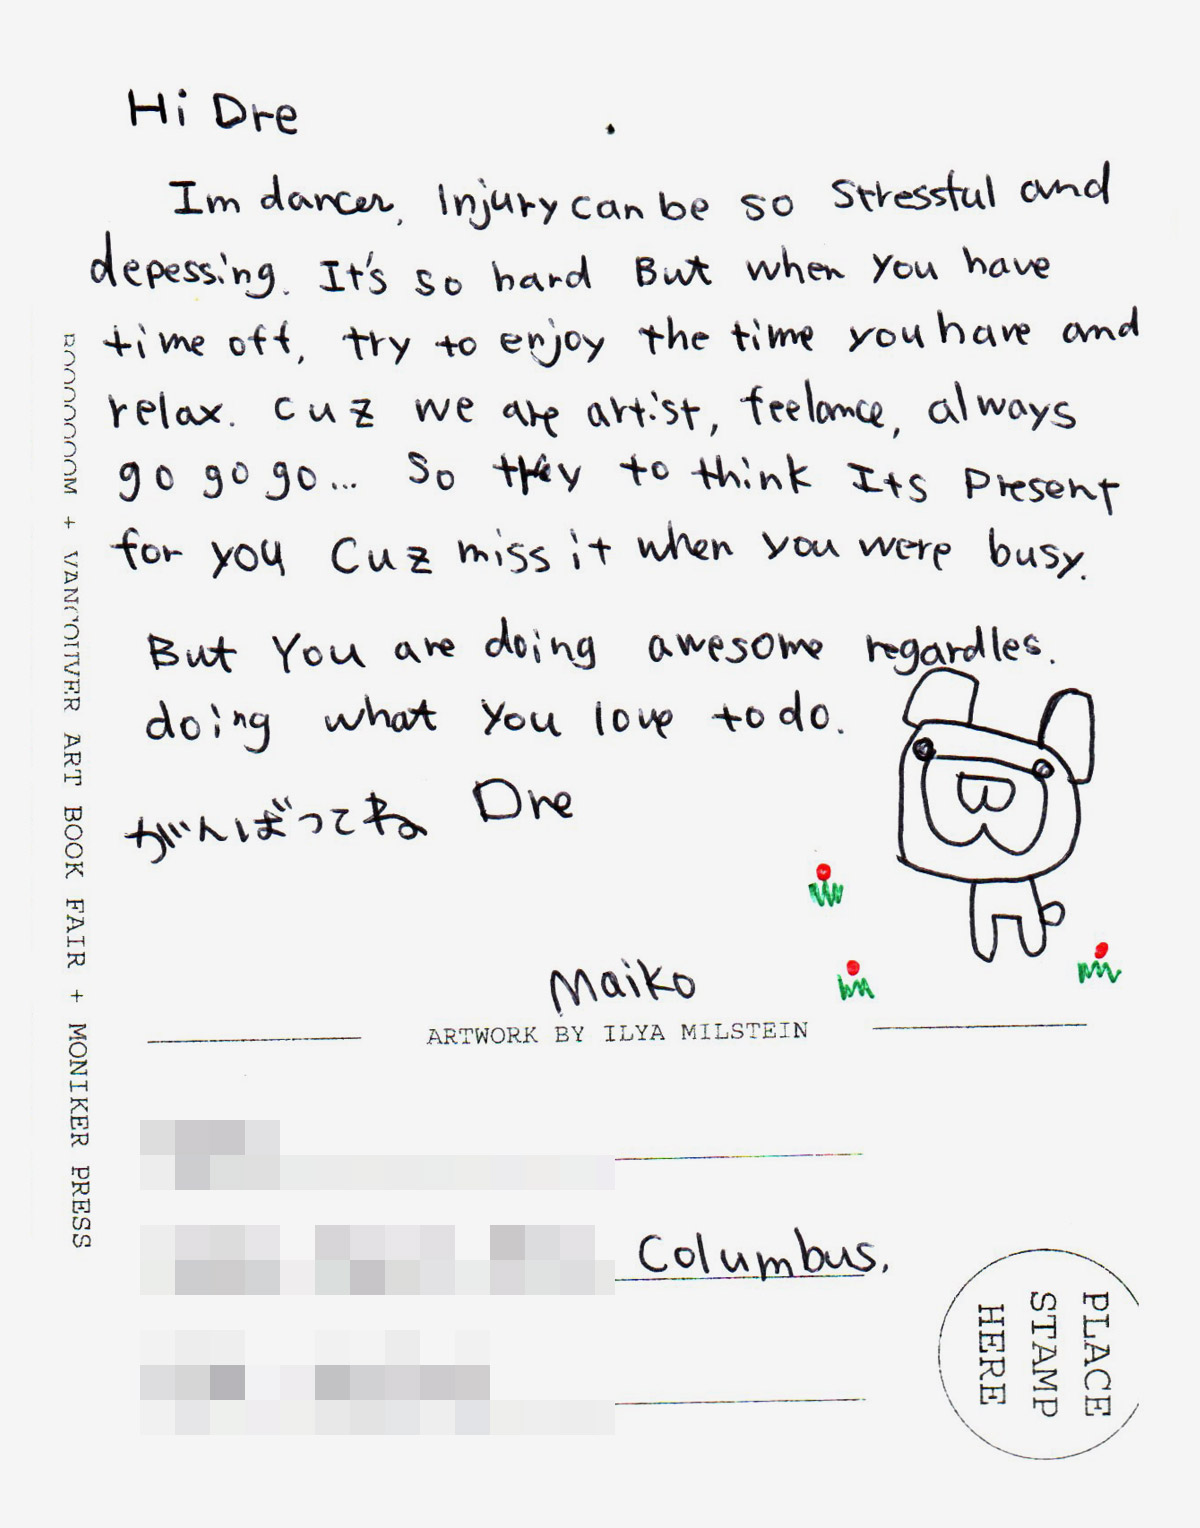 Hi Dre
Im dancer, Injury can be so stressful and
depessing. It's so hard But when you have
time off, try to enjoy the time you have and
relax. cuz we are artist, feelance, always
go go go... So try to think Its Present
for you Cuz miss it when you were busy.
But You are doing awesome regardles.
doing what you love to do.
がんばってね Dre
Maiko
ARTWORK BY ILYA MILSTEIN
Columbus,
PLACE
STAMP
HERE
BOOOOOOOM + VANCOUVER ART BOOK FAIR + MONIKER PRESS